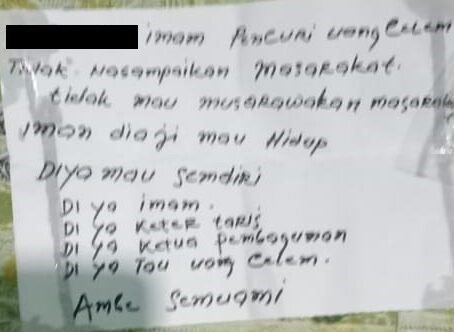 imam Pencuri uang Celem
Tidak Nasampaikan masarakat.
tidak mau musarawakan masarak
iman diaji mau Hidup
Diya mau sendiri
Di ya imam.
Di ya Keter taris
Di ya Ketua pembagunan
Di ya Tau uang Celem.
Ambe semuami